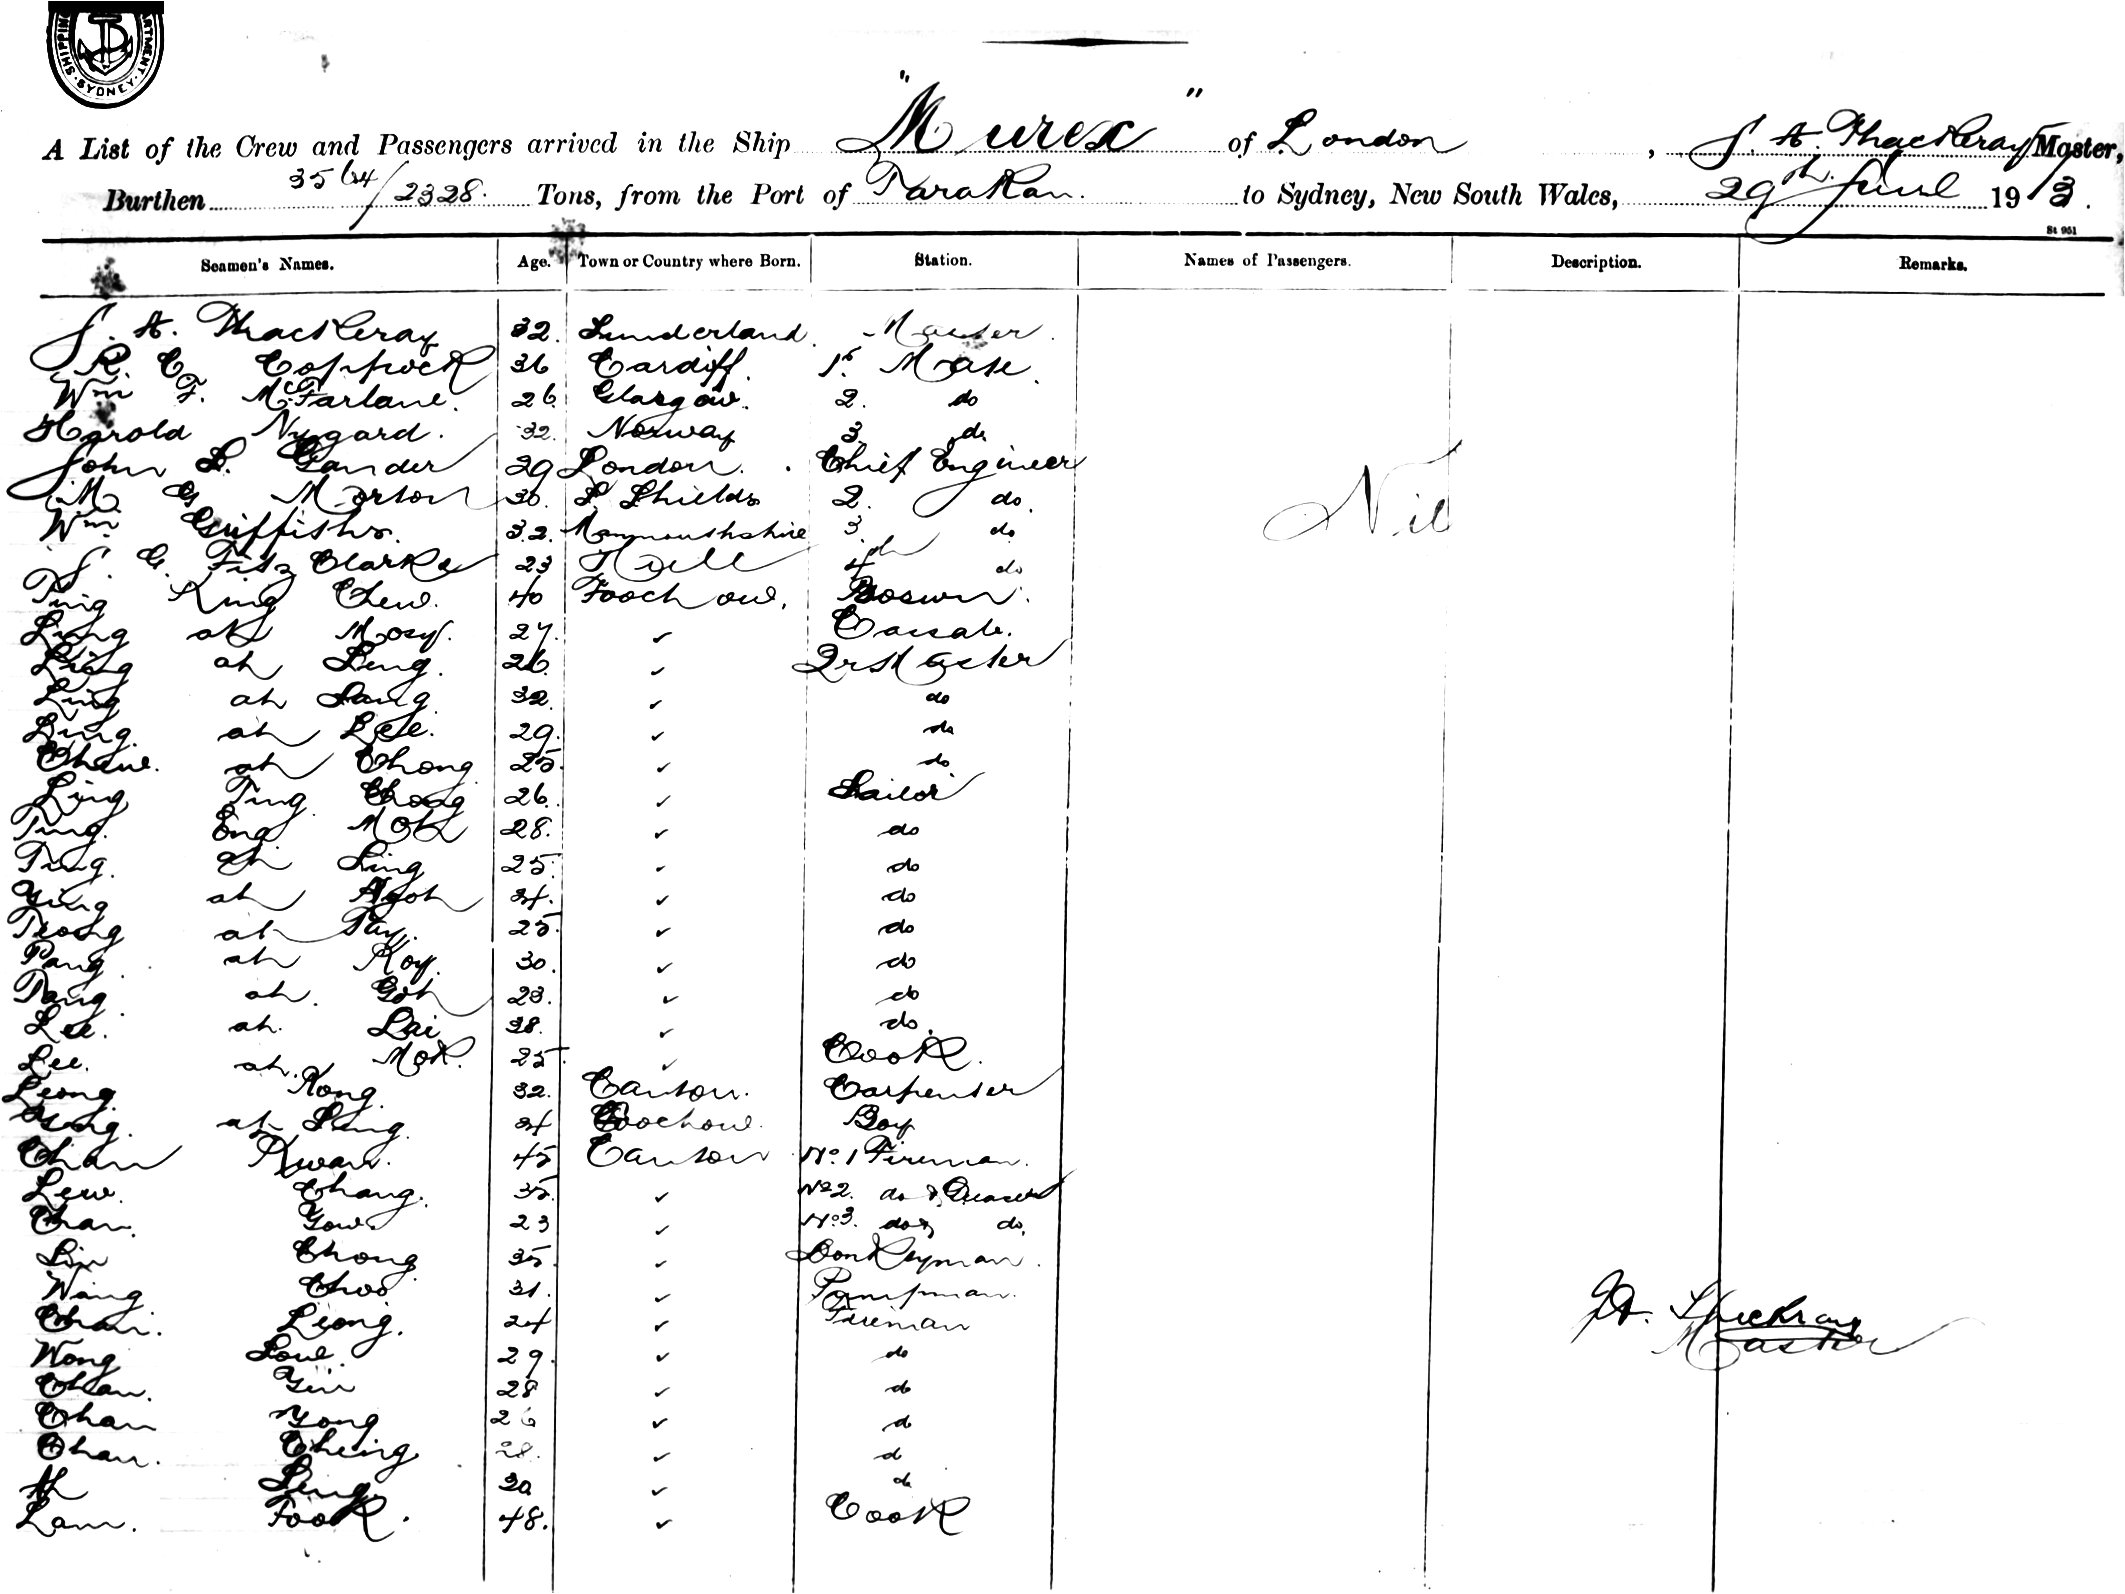 SHIPPING DEPARTMENT SYDNEY
A List of the Crew and Passengers arrived in the Ship "Murex" of London, J. A. Thackeray Master,
Burthen 3564/2328. Tons, from the Port of Tarakan. to Sydney, New South Wales, 29th June 1913.
St 951
Seamen's Names. Age. Town or Country where Born. Station. Names of Passengers. Description. Remarks.
J. A. Thackeray 32. Sunderland. Master.
R. C. Coppock 36 Cardiff. 1st Mate.
Wm F. McFarlane. 26. Glasgow. 2. do
Harold Nygard. 32. Norway 3. do
John L. Gander 29 London. Chief Engineer
M G Morton 30. S. Shields 2. do.
Nil
Wm Griffiths. 32. Monmouthshire 3. do
J. G. Fitz Clarke 23 Hull 4th do
Ting King Chew. 40 Foochow. Boswn.
Ling ah Moy. 27. ✓ Cassab.
Ling ah Seng. 26. ✓ Qr Master
Ling ah Sang. 32. ✓ do
Ling. ah Lee. 29. ✓ do
Chew. ah Chong 25. ✓ do.
Ling Ting Chong 26. ✓ Sailor
Ting. Eng Mok 28. ✓ do
Ting. ah Sing 25. ✓ do
Ying ah Ngoh 34. ✓ do
Teong ah Tay. 25. ✓ do
Pang. ah Koy. 30. ✓ do
Tang. ah. Goh 23. ✓ do
Lee. ah. Lai 38. ✓ do.
Lee. ah. Mok. 25. ✓ Cook.
Leong. Kong. 32. Canton. Carpenter
ah Sing. 24 Foochow. Boy
Chan Kwan. 45 Canton No. 1 Fireman.
Lew. Chang. 35. ✓ No 2. do & Greaser
Chan. Yow. 23 ✓ No 3. do & do.
Lin Chong 35. ✓ Donkeyman.
Wang Choo 31. ✓ Pumpman.
Chan. Leong. 24 ✓ Fireman
J.A. Thackray
Master
Wong Low. 29. ✓ do
Chan. Yin 28 ✓ do
Chan Yong 26 ✓ do
Chan. Cheing 28. ✓ do
Ah Seng. 30 ✓ do
Lam. Fook. 48. ✓ Cook